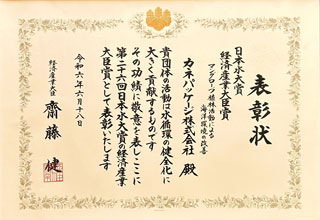 表彰状
日本水大賞
経済産業大臣賞
マングローブ植林活動による
海洋環境の改善
カネパッケージ株式会社 殿
貴団体の活動は水循環の健全化に
大きく貢献するものです
その功績に敬意を表しここに
第二十六回日本水大賞の経済産業
大臣賞として表彰いたします
令和六年六月十八日
経済産業大臣
齋藤 健